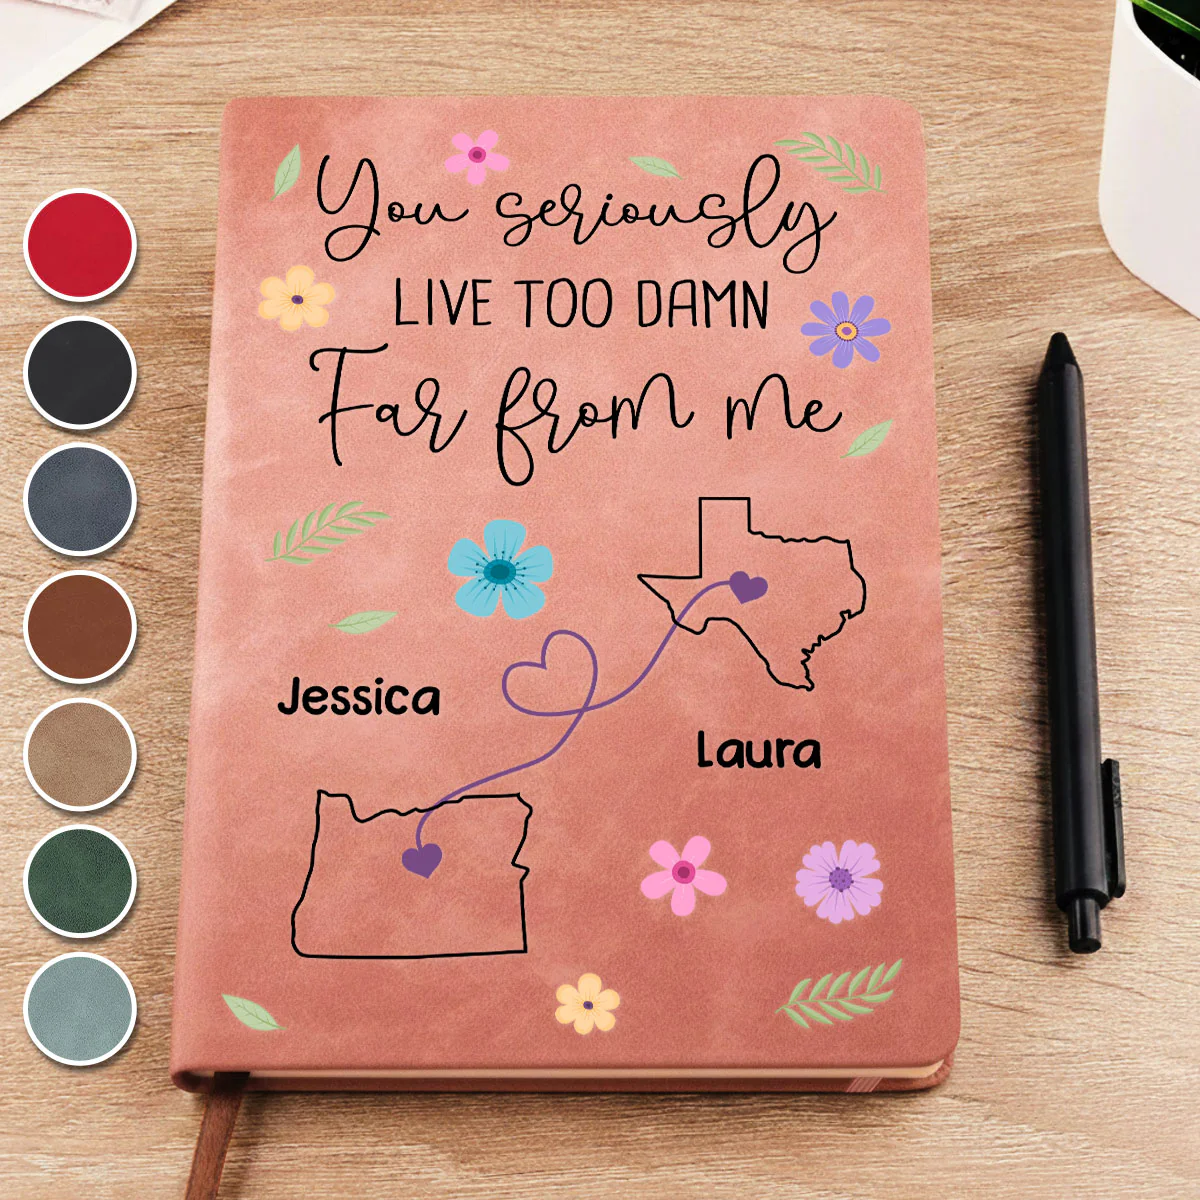 You seriously
LIVE TOO DAMN
Far from me
Jessica
Laura